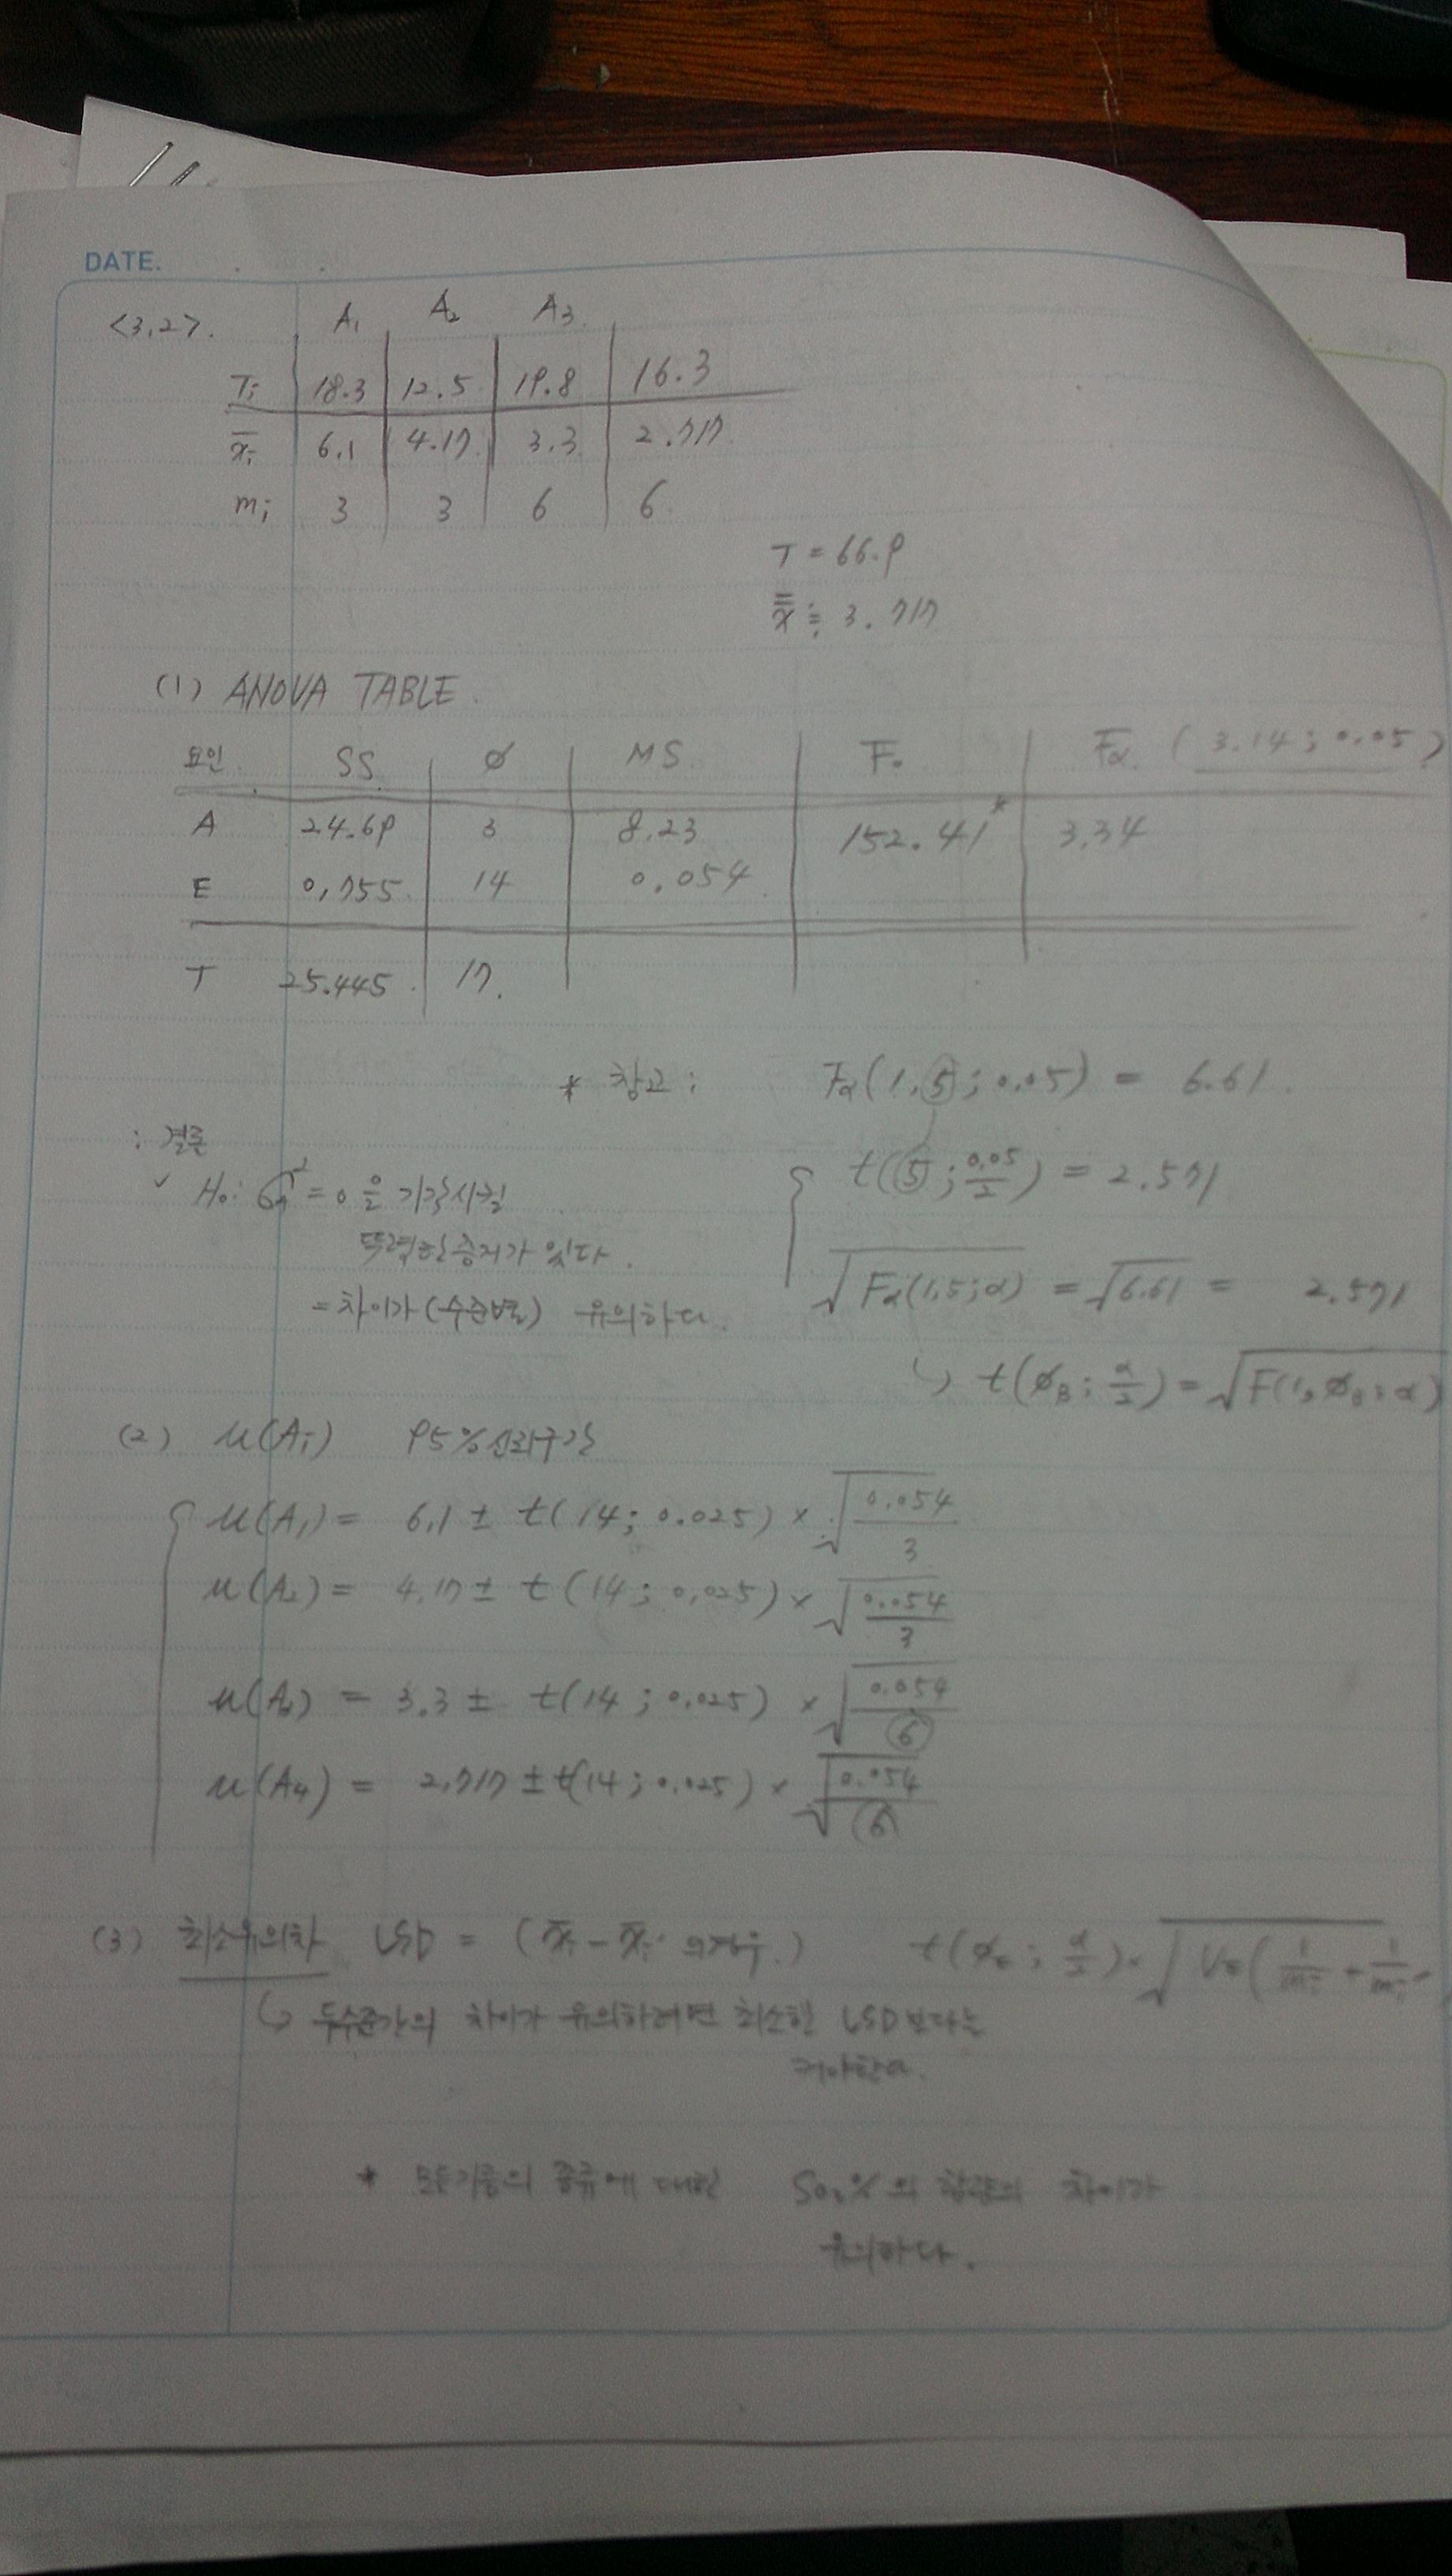 DATE.
<3.2>. A₁ A₂ A₃
Tᵢ 18.3 12.5 19.8 16.3
x̄ᵢ 6.1 4.17 3.3 2.717
mᵢ 3 3 6 6
T = 66.9
x̿ ≒ 3.717
(1) ANOVA TABLE.
요인 SS ∅ MS F₀ Fα (3.14 ; 0.05)
A 24.69 3 8.23 152.41* 3.34
E 0.755 14 0.054
T 25.445 17.
* 참고 : Fα(1, 5 ; 0.05) = 6.61
: 결론
t(5 ; 0.05/2) = 2.571
✓ H₀: σ² = 0 을 기각시킬
뚜렷한 증거가 있다.
√Fα(1,5;α) = √6.61 = 2.571
= 차이가(수준별) 유의하다.
↳ t(∅ ; α/2) = √F(1, ∅ ; α)
(2) μ(Aᵢ) 95% 신뢰구간
μ(A₁) = 6.1 ± t(14 ; 0.025) × √(0.054/3)
μ(A₂) = 4.17 ± t(14 ; 0.025) × √(0.054/3)
μ(A₃) = 3.3 ± t(14 ; 0.025) × √(0.054/6)
μ(A₄) = 2.717 ± t(14 ; 0.025) × √(0.054/6)
(3) 최소유의차 LSD = (x̄ᵢ - x̄ᵢ' 의 경우.) t(∅ᴇ ; α/2) · √Vᴇ(1/mᵢ + 1/mᵢ'
↳ 두수준간의 차이가 유의하려면 최소한 LSD 보다는
커야한다.
* 모든기름의 종류에 대한 SO₂%의 함량의 차이가
유의하다.